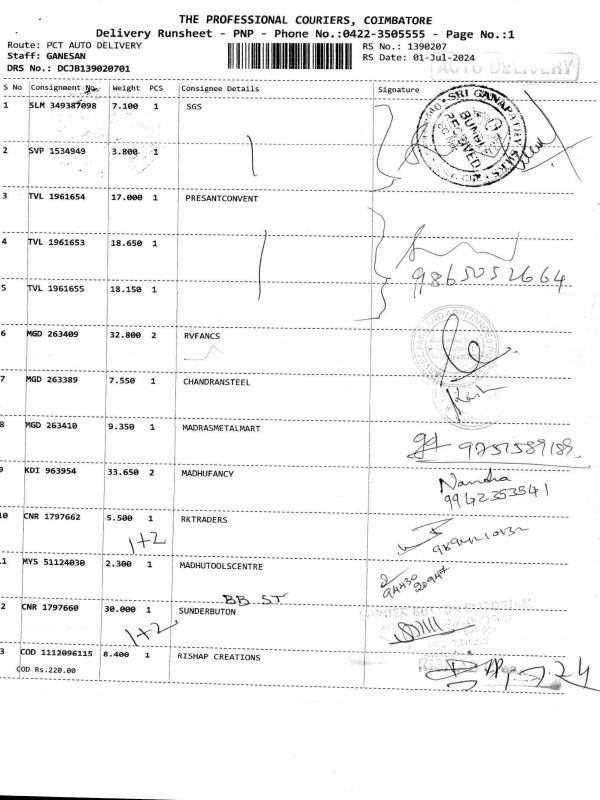 THE PROFESSIONAL COURIERS, COIMBATORE
Delivery Runsheet - PNP - Phone No.:0422-3505555 - Page No.:1
Route: PCT AUTO DELIVERY
Staff: GANESAN
DRS No.: DCJB139020701
RS No.: 1390207
RS Date: 01-Jul-2024
AUTO DELIVERY
S No Consignment No. Weight PCS Consignee Details Signature
1 SLM 349387098 7.100 1 SGS
SRI GANAPATHY SILKS
RECEIVED
2 SVP 1534949 3.800 1
3 TVL 1961654 17.000 1 PRESANTCONVENT
4 TVL 1961653 18.650 1
9865052664
5 TVL 1961655 18.150 1
6 MGD 263409 32.800 2 RVFANCS
7 MGD 263389 7.550 1 CHANDRANSTEEL
8 MGD 263410 9.350 1 MADRASMETALMART
9751589189
9 KDI 963954 33.650 2 MADHUFANCY
Nandha
9942353541
10 CNR 1797662 5.500 1 RKTRADERS
1+2
.1 MYS 51124030 2.300 1 MADHUTOOLSCENTRE
94430
20947
BB ST
2 CNR 1797660 30.000 1 SUNDERBUTON
1+2
3 COD 1112096115 8.400 1 RISHAP CREATIONS
COD Rs.220.00